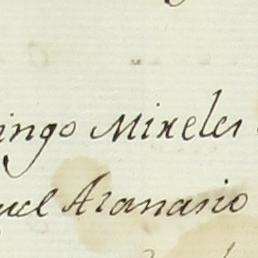 ingo Mireles
uel Atanasio